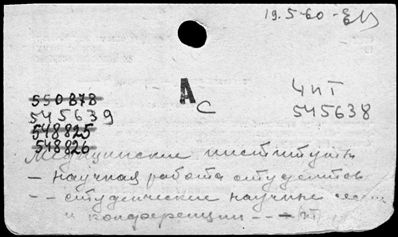 19.5-60-
А
С
ЧПТ
550878
545639
545638
548825
548826
Медицинские институты
- научная работа студентов
- - студенческие научные
и конференции - -